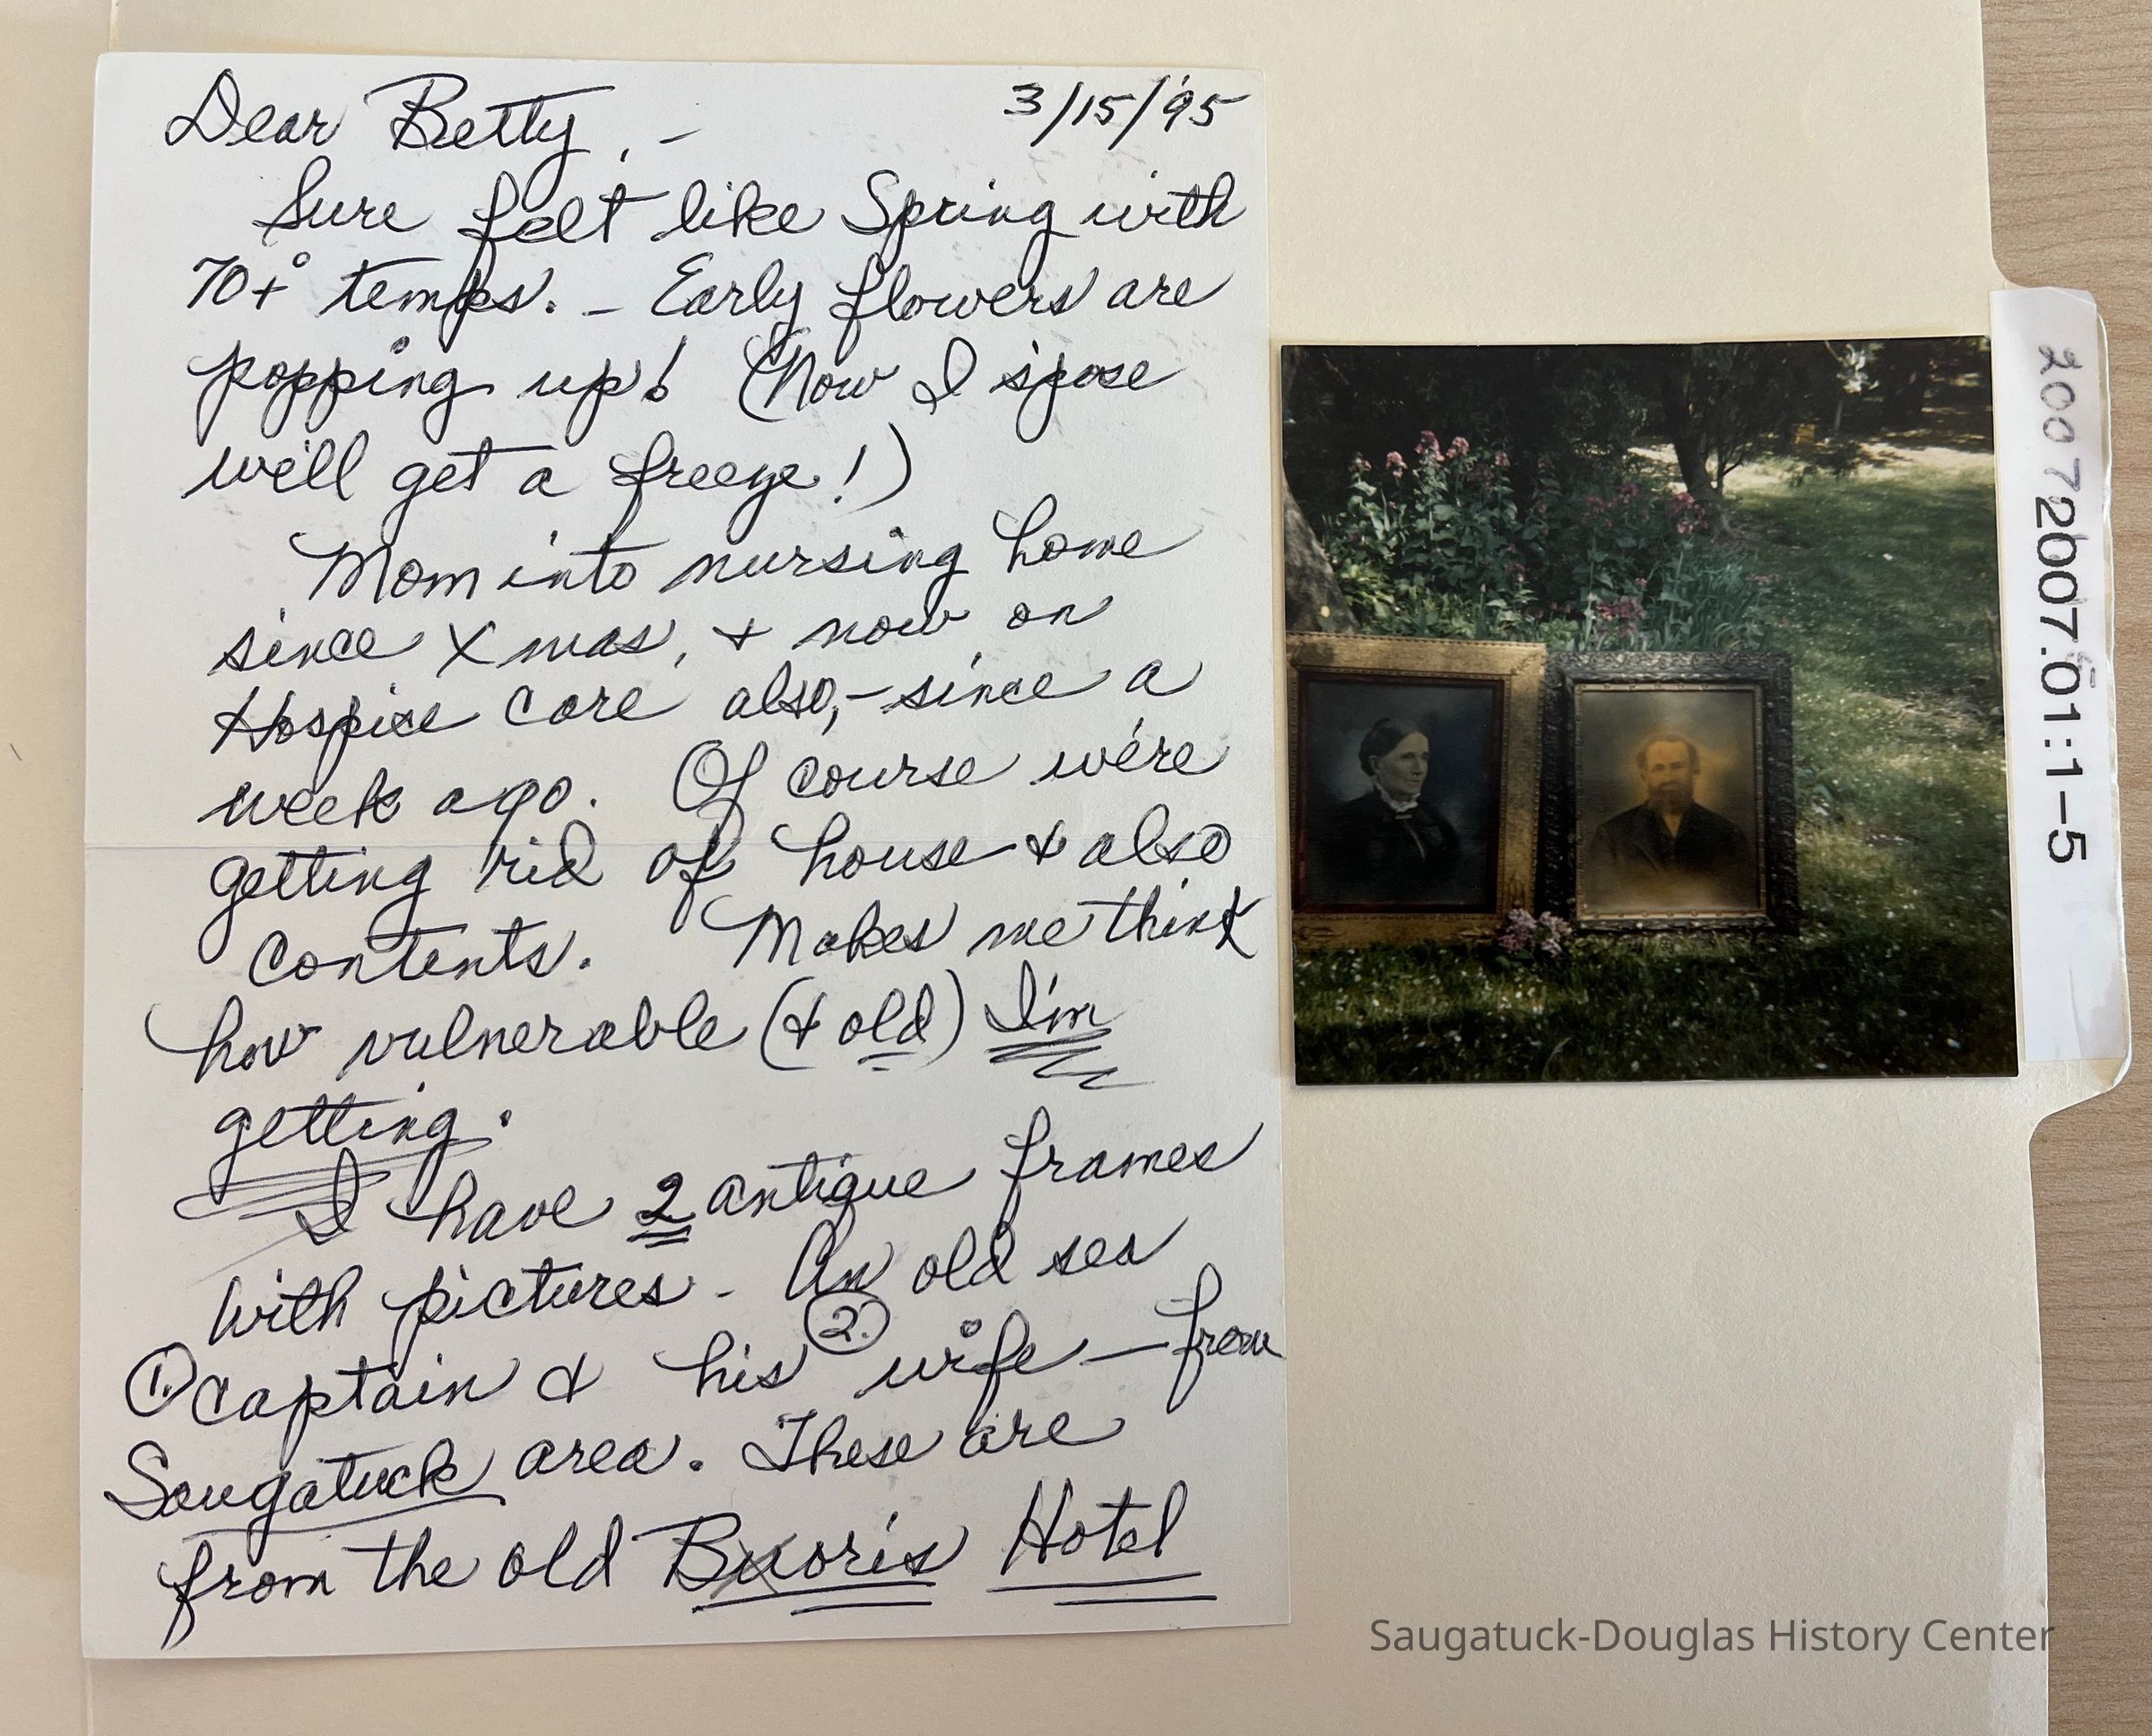 Dear Betty, -
3/15/'95
Sure felt like Spring with
70+° temps. - Early flowers are
popping up! (Now I s'pose
we'll get a freeze!)
Mom into nursing home
since Xmas, & now on
Hospice care also, - since a
week ago. Of course we're
getting rid of house & also
contents. Makes me think
how vulnerable (& old) I'm
getting.
I have 2 antique frames
with pictures - An old sea
① captain & his ② wife — from
Saugatuck area. These are
from the old Hotel
2007
2007.01:1-5
Saugatuck-Douglas History Center